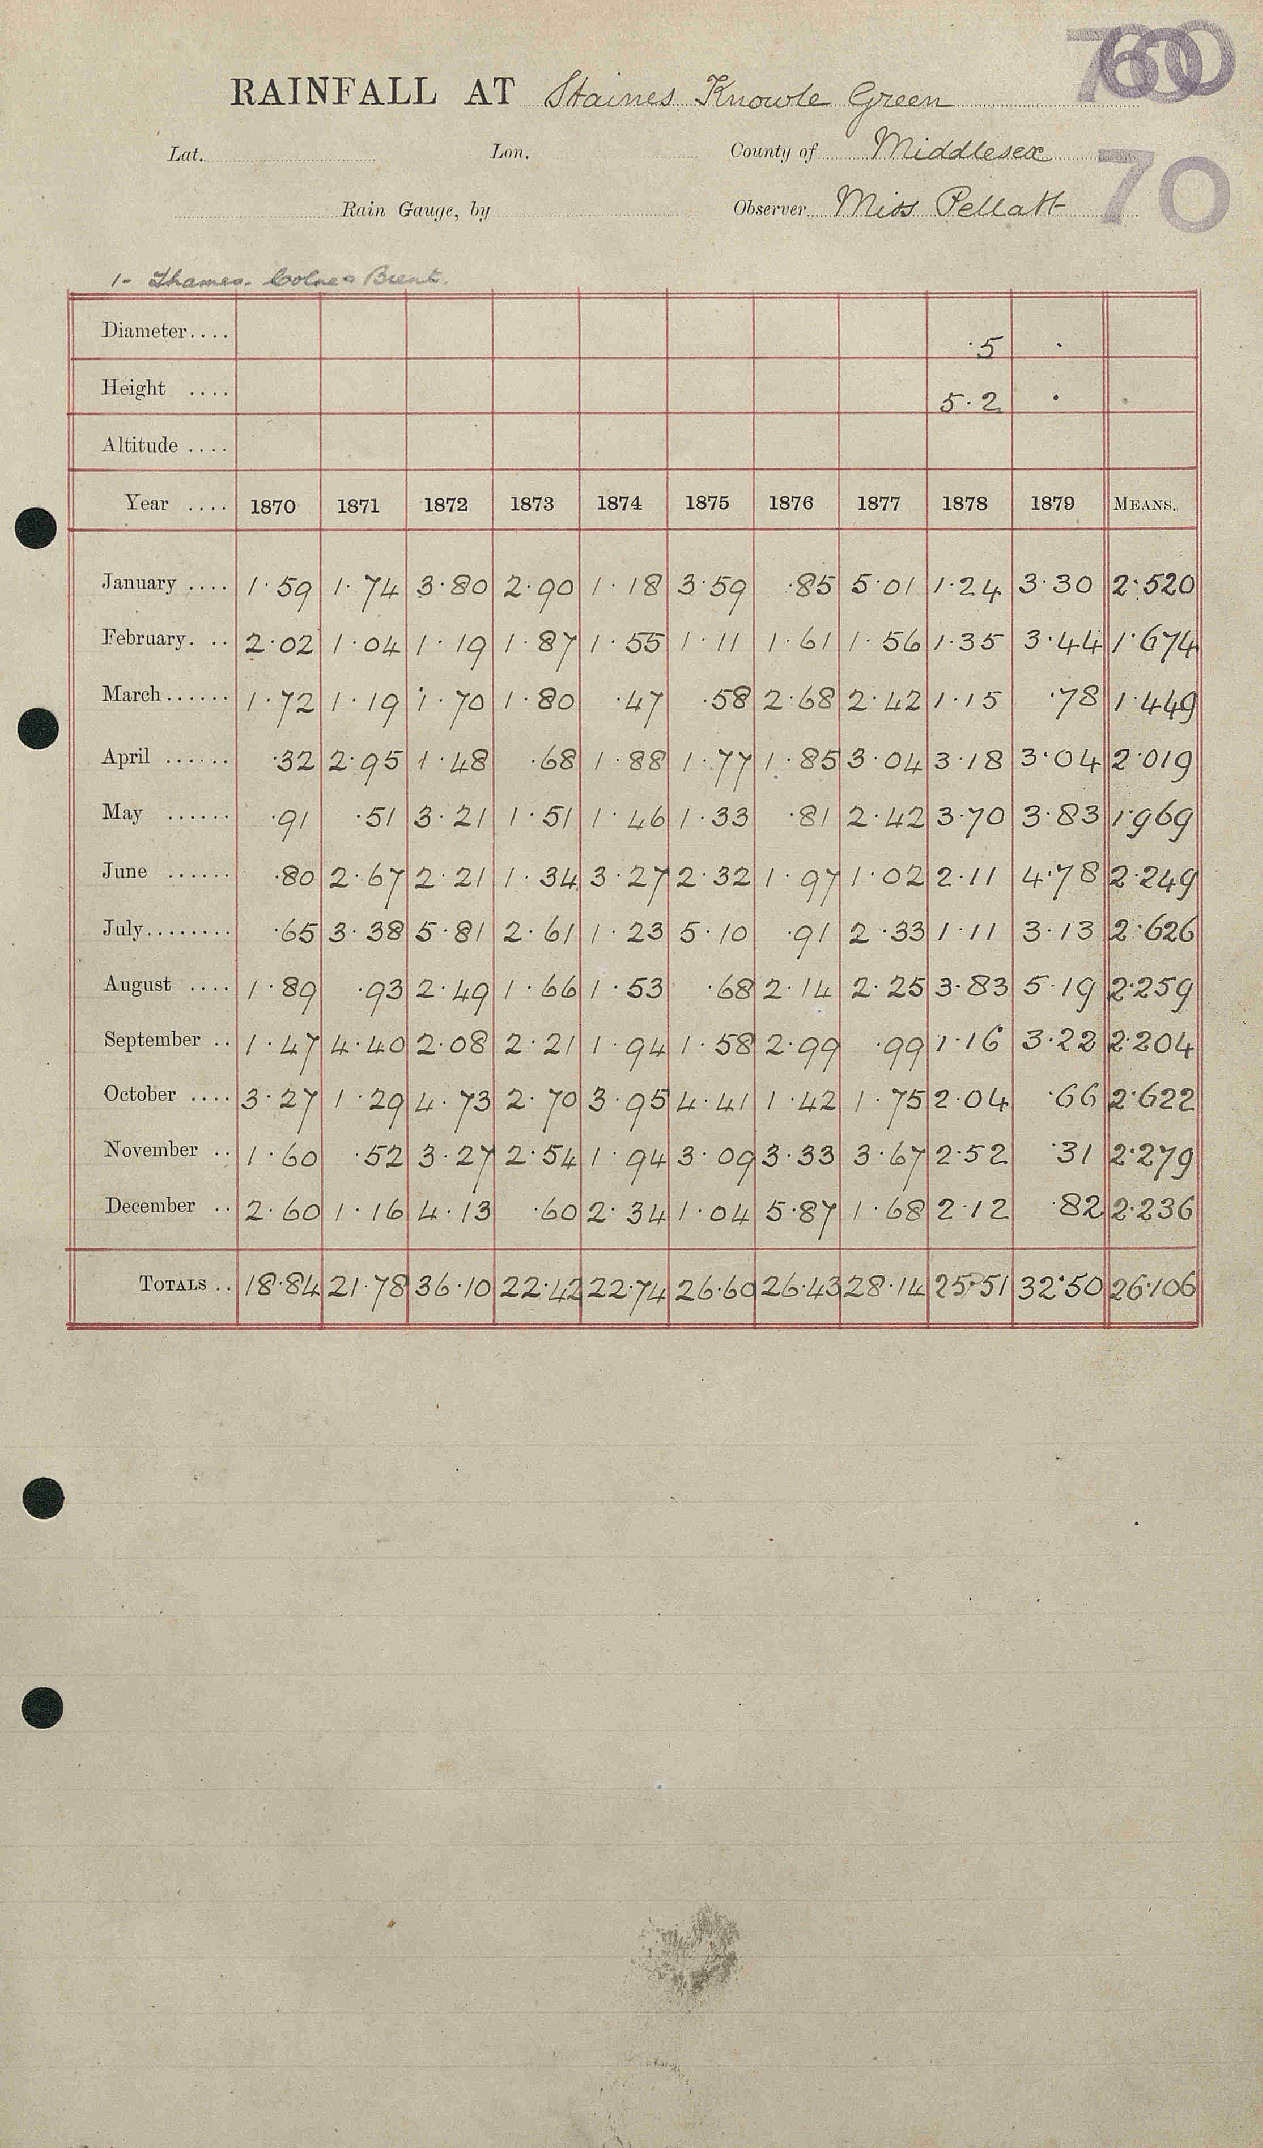 700
600
RAINFALL AT Staines Knowle Green
Lat. Lon. County of Middlesex
70
Rain Gauge, by Observer Miss Pellatt
1- Thames. Colne & Brent.
Diameter.... ·5 ·
Height .... 5·2 ·
Altitude ....
Year .... 1870 1871 1872 1873 1874 1875 1876 1877 1878 1879 MEANS.
January .... 1·59 1·74 3·80 2·90 1·18 3·59 ·85 5·01 1·24 3·30 2·520
February. .. 2·02 1·04 1·19 1·87 1·55 1·11 1·61 1·56 1·35 3·44 1·674
March...... 1·72 1·19 1·70 1·80 ·47 ·58 2·68 2·42 1·15 ·78 1·449
April ...... ·32 2·95 1·48 ·68 1·88 1·77 1·85 3·04 3·18 3·04 2·019
May ...... ·91 ·51 3·21 1·51 1·46 1·33 ·81 2·42 3·70 3·83 1·969
June ...... ·80 2·67 2·21 1·34 3·27 2·32 1·97 1·02 2·11 4·78 2·249
July........ ·65 3·38 5·81 2·61 1·23 5·10 ·91 2·33 1·11 3·13 2·626
August .... 1·89 ·93 2·49 1·66 1·53 ·68 2·14 2·25 3·83 5·19 2·259
September .. 1·47 4·40 2·08 2·21 1·94 1·58 2·99 ·99 1·16 3·22 2·204
October .... 3·27 1·29 4·73 2·70 3·95 4·41 1·42 1·75 2·04 ·66 2·622
November .. 1·60 ·52 3·27 2·54 1·94 3·09 3·33 3·67 2·52 ·31 2·279
December .. 2·60 1·16 4·13 ·60 2·34 1·04 5·87 1·68 2·12 ·82 2·236
TOTALS .. 18·84 21·78 36·10 22·42 22·74 26·60 26·43 28·14 25·51 32·50 26·106